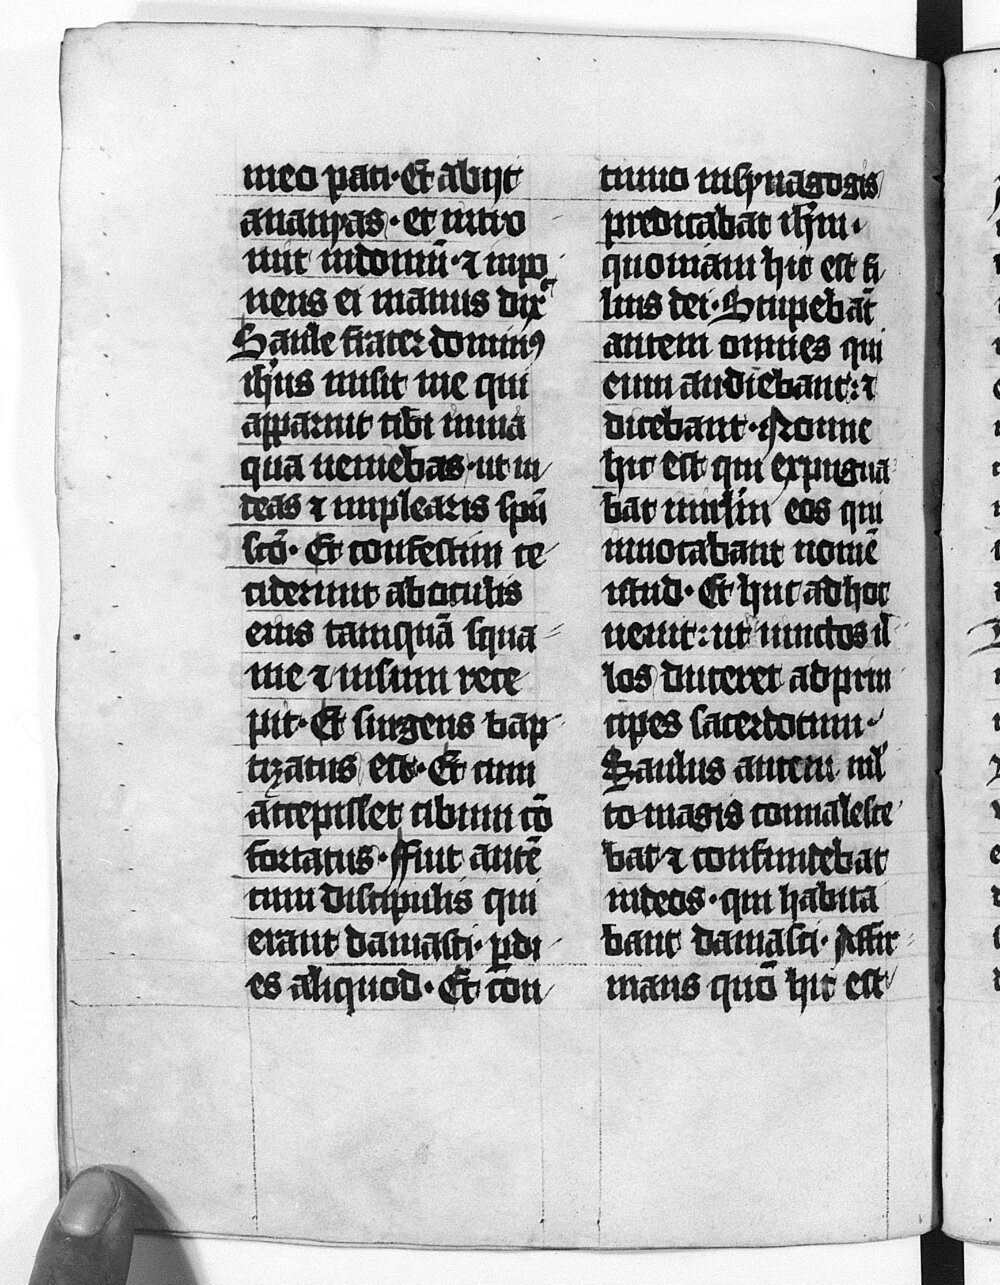 meo pati · Et abijt
ananyas · et intro
iuit indomū · ⁊ inpo
nens ei manus dix̄
Saule frater dominꝰ
ih̄us misit me qui
apparuit tibi inuia
qua ueniebas · ut ui
deas ⁊ implearis sp̄u
sc̄o · Et confestim ce
ciderunt aboculis
eius tamquā squa
me ⁊ uisum rece
pit · Et surgens bap
tizatus est · Et cum
accepisset cibum cō
fortatus · Fuit autē
cum discipulis qui
erant damasci · ꝑ di
es aliquod · Et con
tinuo insynagogis
predicabat ih̄m ·
quoniam hic est fi
lius dei · Stupebāt
autem omnes qui
eum audiebant : ⁊
dicebant · Nonne
hic est qui expugna
bat inirl̄m eos qui
inuocabant nomē
istud · Et huc adhoc
uenit : ut uinctos il
los duceret adprin
cipes sacerdotum ·
Saulus autem ml̄
to magis conualesce
bat ⁊ confundebat
iudeos · qui habita
bant damasci · Affir
mans quō hic est